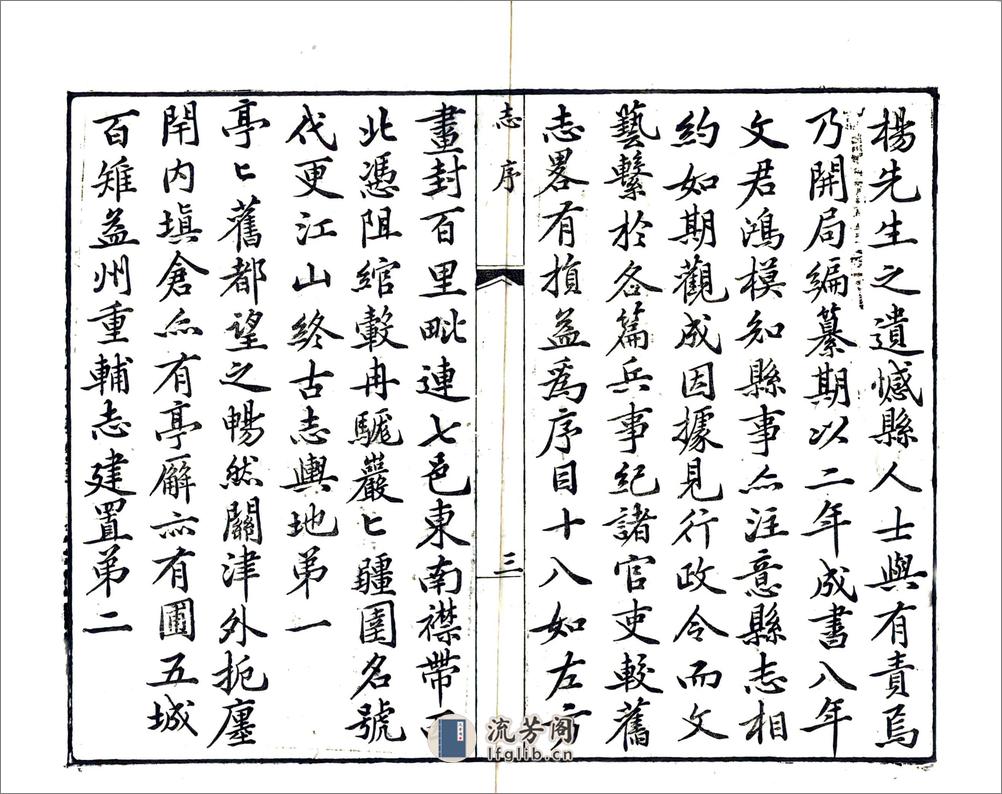 楊先生之遺憾縣人士與有責焉
乃開局編纂期以二年成書八年
文君鴻模知縣事亦注意縣志相
約如期觀成因據見行政令而文
藝繫於各篇兵事紀諸官吏較舊
志畧有損益爲序目十八如左方
志序
三
畫封百里毗連七邑東南襟帶西
北憑阻綰轂冉駹巖匕疆圉名號
代更江山終古志輿地第一
亭匕舊都望之暢然關津外扼廛
閈内塡倉亦有亭廨亦有圃五城
百雉益州重輔志建置第二
流芳阁
lfglib.cn